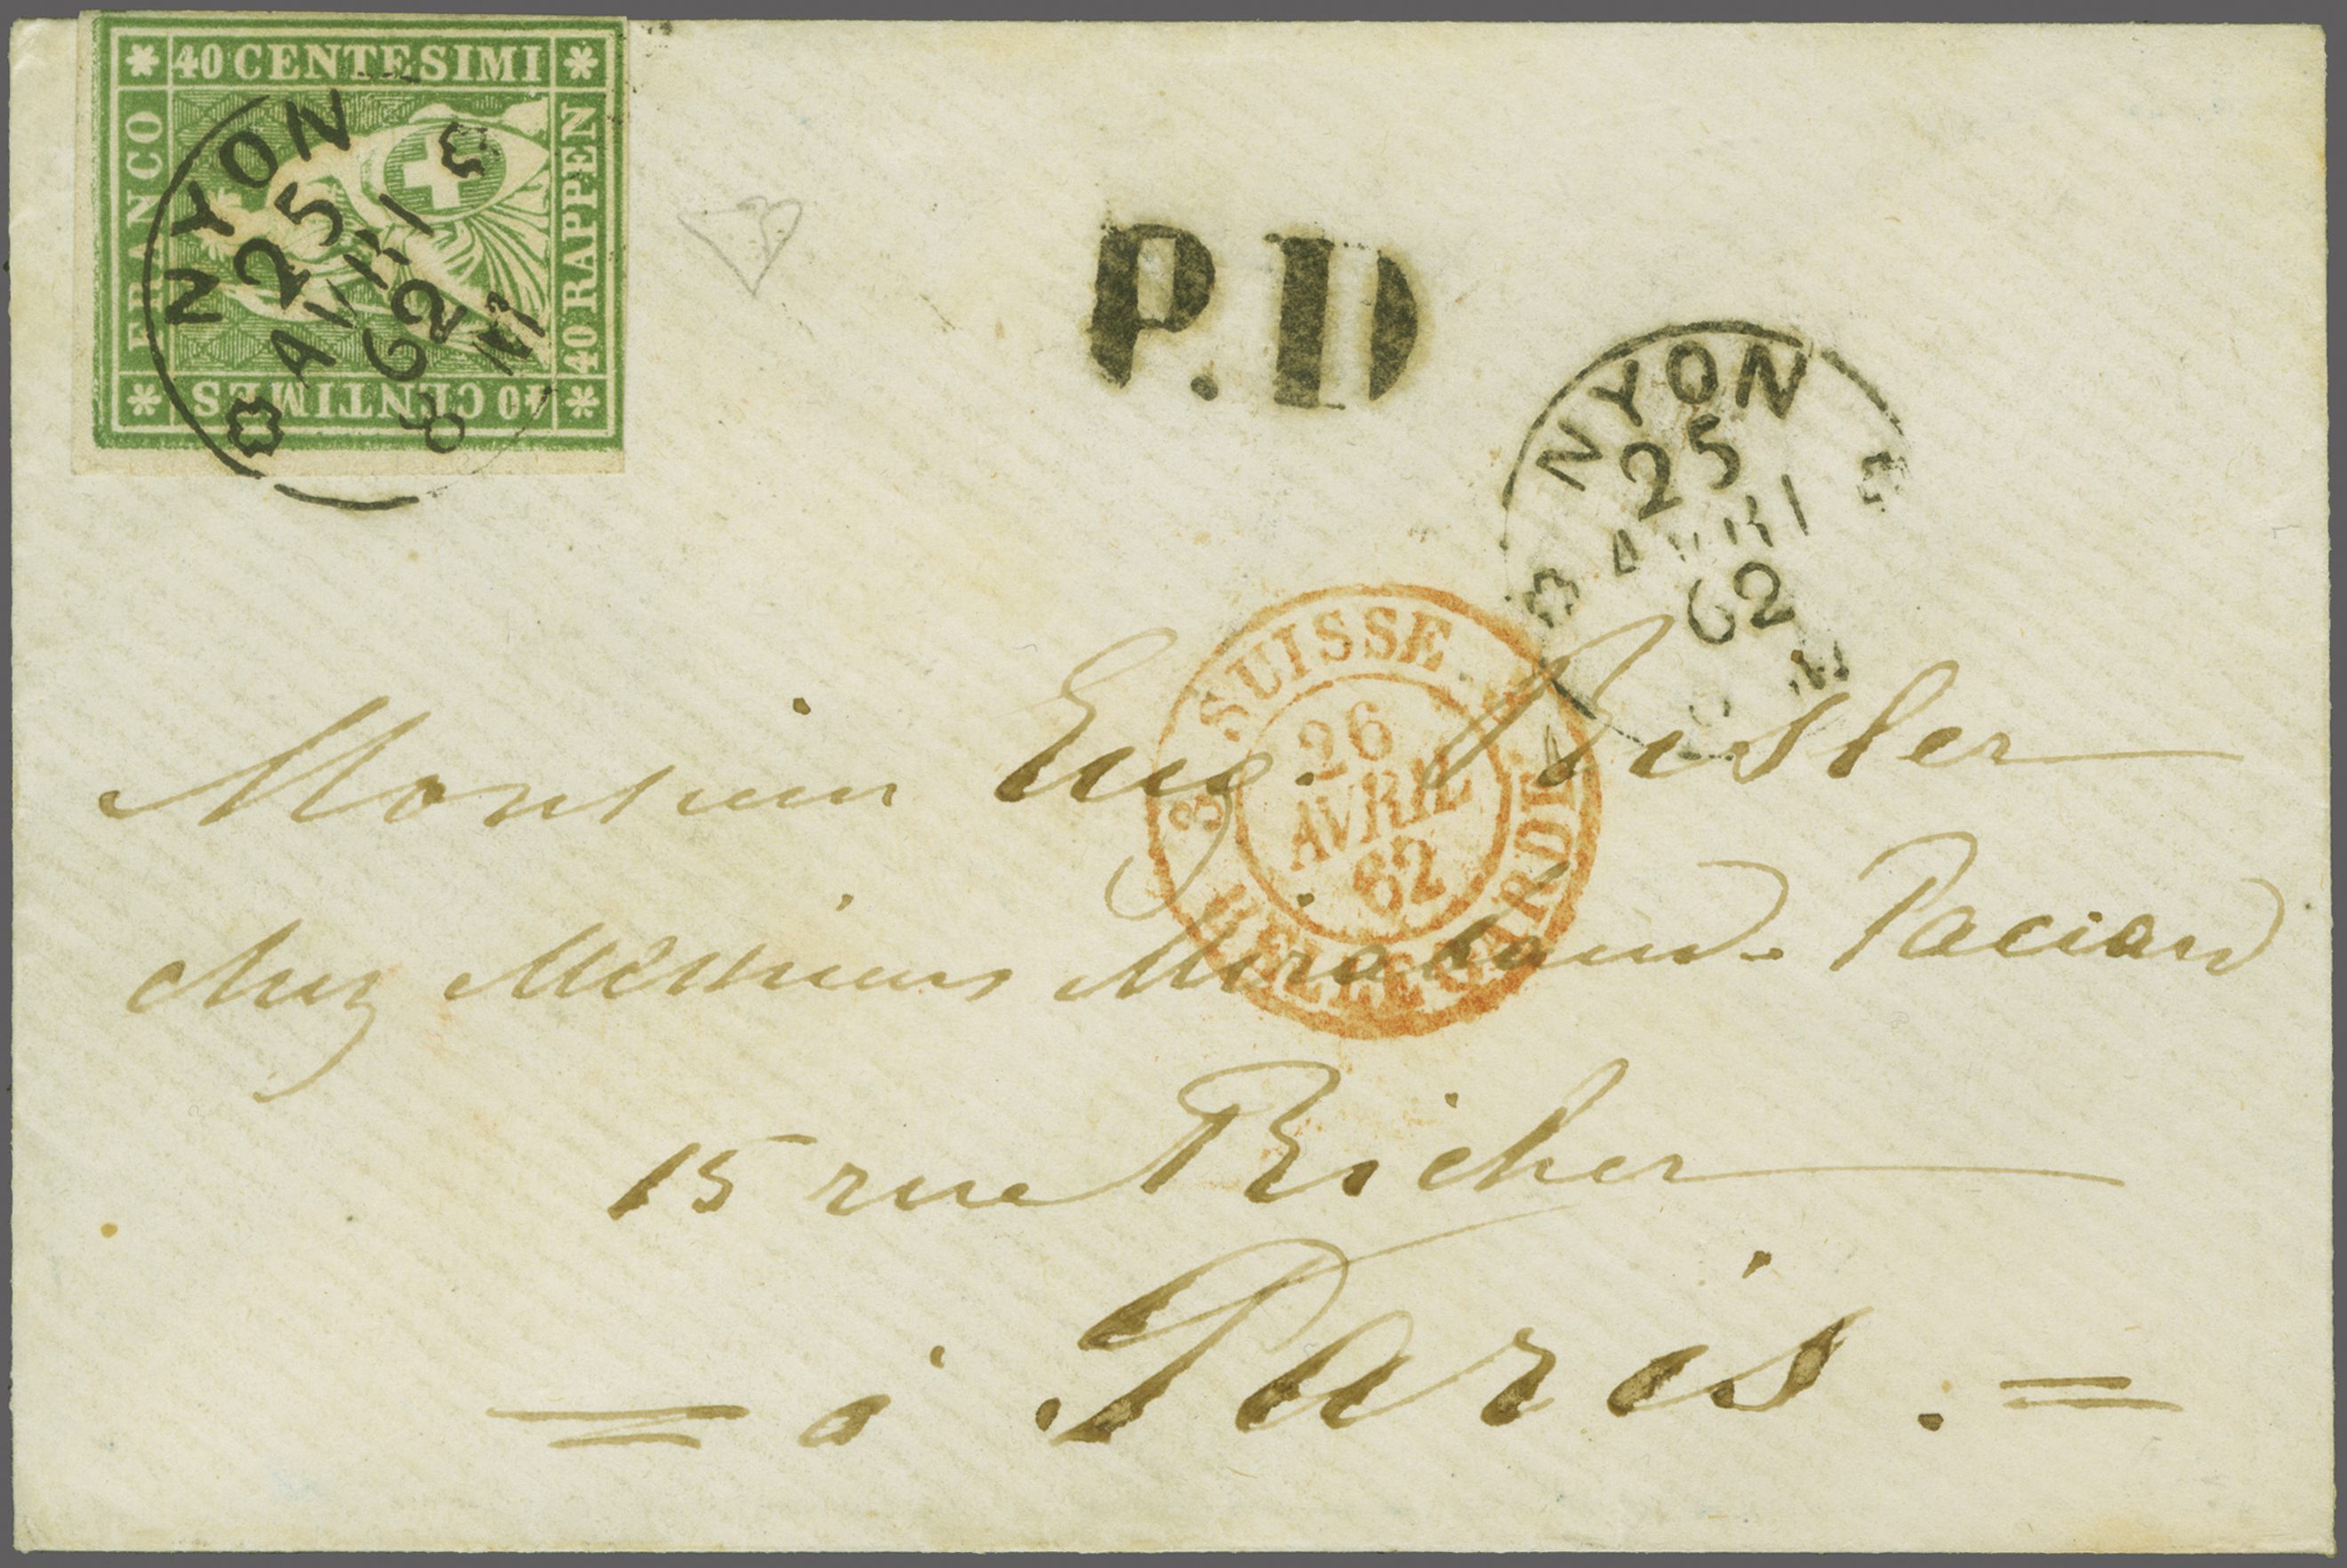 40 CENTESIMI
FRANCO
40 RAPPEN
40 CENTIMES
NYON
25
AVRI
62
8 M
P.D
NYON
25
AVRI
62
M
SUISSE
3
26
AVRIL
62
BELLEGARDE
Monsieur Eug. Risler
chez Messieurs Mirabaud. Paccard
15 rue Richer
= à Paris . =